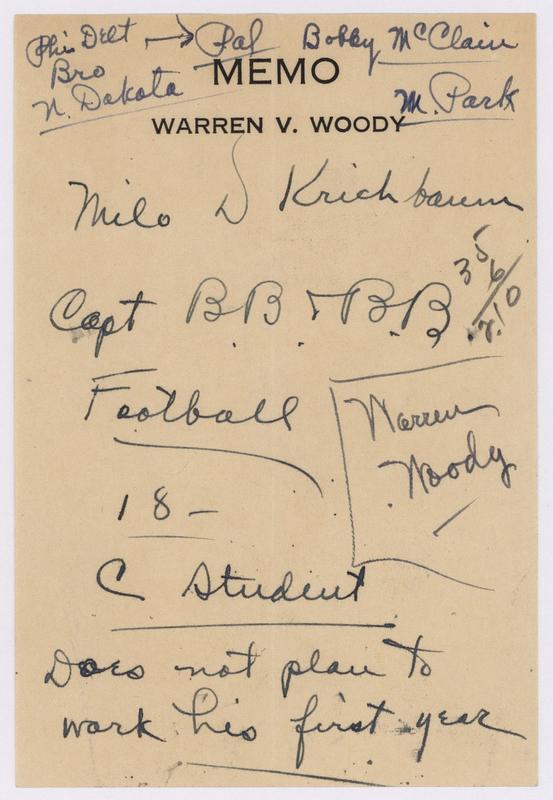 Phi Delt → Pal Bobby McClain
Bro
N. Dakota M. Park
MEMO
WARREN V. WOODY
Milo D Krichbaum
Capt B.B. & B.B
Football
Warren
Woody
18 -
C Student
Does not plan to
work his first year